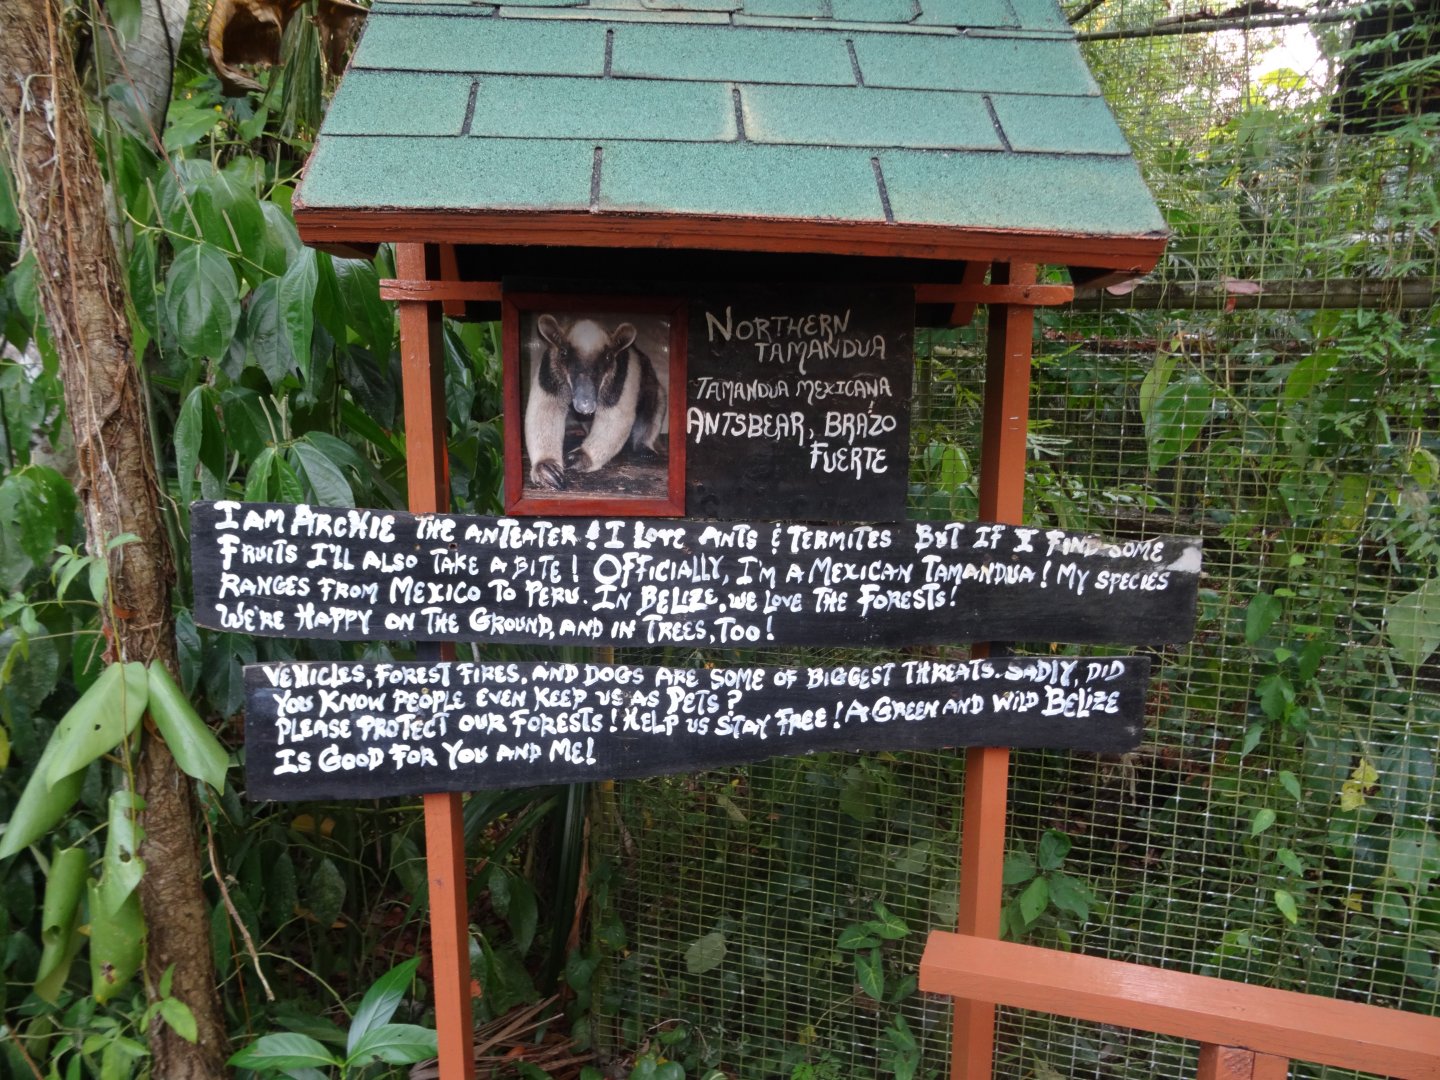 NORTHERN
TAMANDUA
TAMANDUA MEXICANA
ANTSBEAR, BRAZO
FUERTE
I AM ARCHIE THE ANTEATER! I LOVE ANTS & TERMITES BUT IF I FIND SOME
FRUITS I'LL ALSO TAKE A BITE! OFFICIALLY, I'M A MEXICAN TAMANDUA! MY SPECIES
RANGES FROM MEXICO TO PERU. IN BELIZE, WE LOVE THE FORESTS!
WE'RE HAPPY ON THE GROUND, AND IN TREES, TOO!
VEHICLES, FOREST FIRES, AND DOGS ARE SOME OF BIGGEST THREATS. SADLY, DID
YOU KNOW PEOPLE EVEN KEEP US AS PETS?
PLEASE PROTECT OUR FORESTS! HELP US STAY FREE! A GREEN AND WILD BELIZE
IS GOOD FOR YOU AND ME!